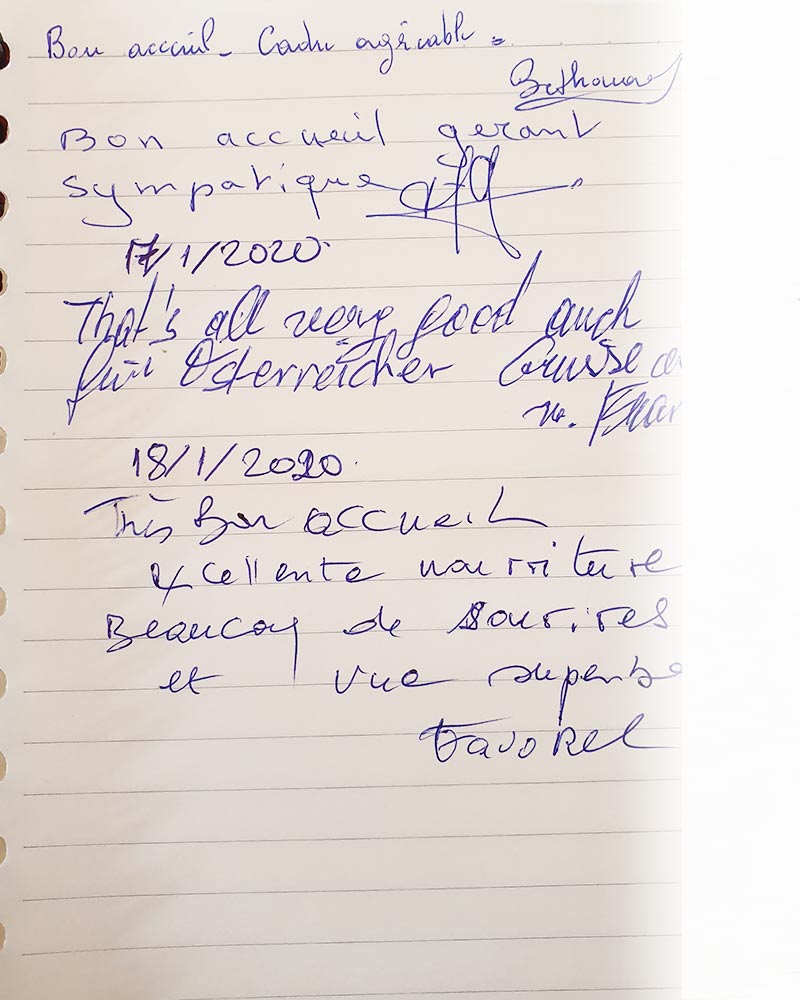 Bon accueil - Cadre agréable.
Bon accueil gerant
sympatique
17/1/2020
That's all very good auch
für Österreicher Grüsse
18/1/2020
Très Bon accueil
excellente nourriture
Beaucoup de sourires
et vue superbe
Favorel